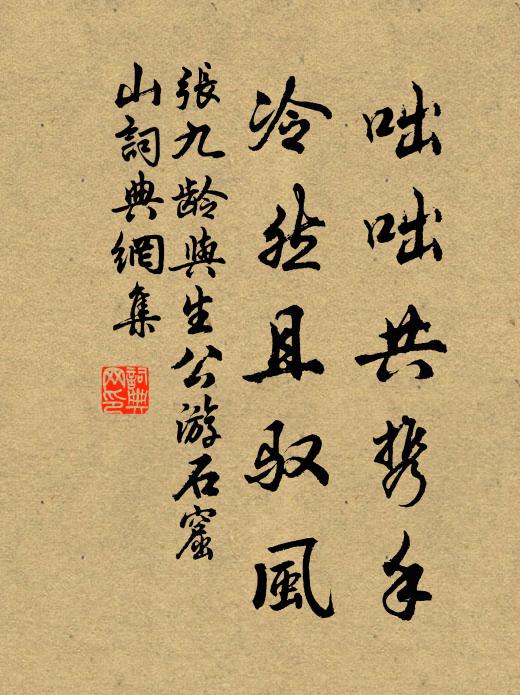 咄咄共携手
冷然且驭風
張九龄與生公游石窟
山詞典網集
詞典網印